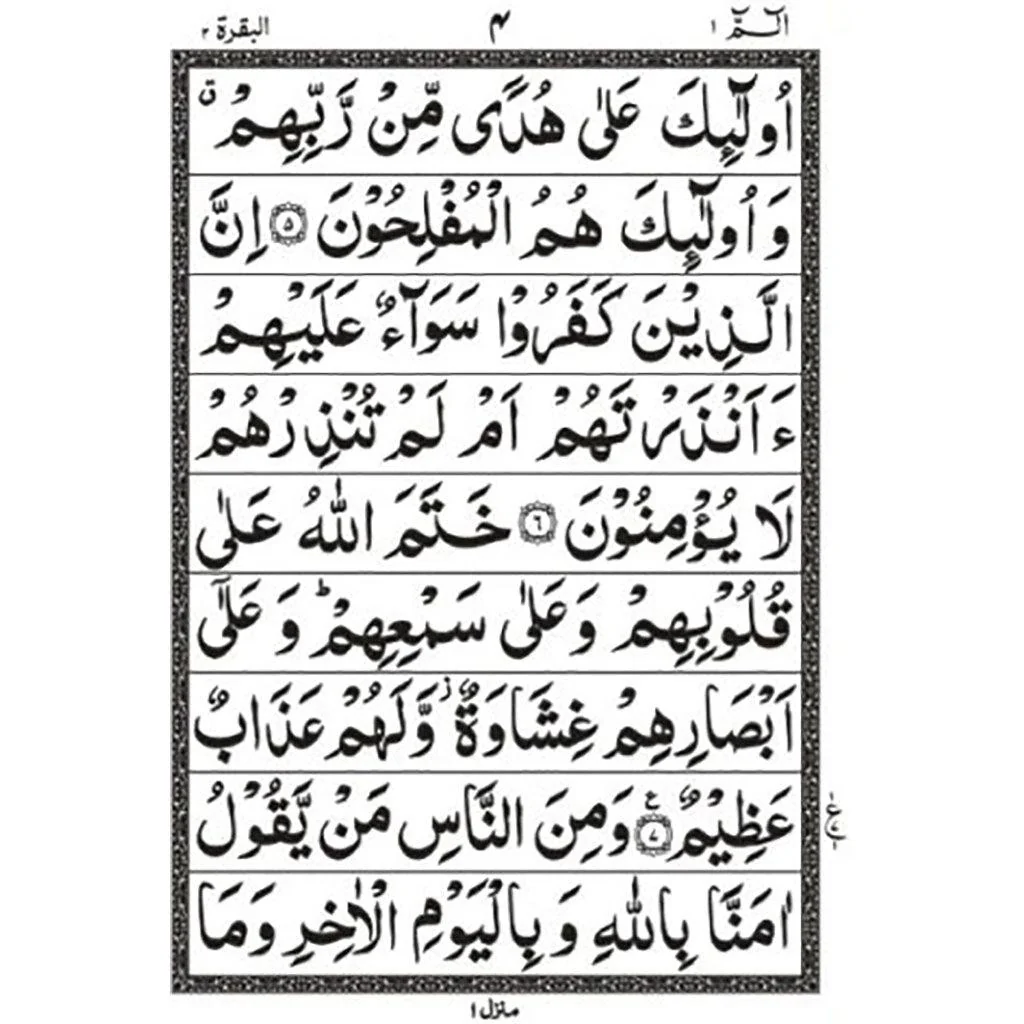 الٓمّٓ ۱ ۴ البقرة ۲
اُولٰٓئِكَ عَلٰى هُدًى مِّنْ رَّبِّهِمْ ۛق
وَاُولٰٓئِكَ هُمُ الْمُفْلِحُوْنَ ۵ اِنَّ
الَّذِيْنَ كَفَرُوْا سَوَآءٌ عَلَيْهِمْ
ءَاَنْذَرْتَهُمْ اَمْ لَمْ تُنْذِرْهُمْ
لَا يُؤْمِنُوْنَ ۶ خَتَمَ اللّٰهُ عَلٰى
قُلُوْبِهِمْ وَعَلٰى سَمْعِهِمْ ؕ وَعَلٰٓى
اَبْصَارِهِمْ غِشَاوَةٌ ز وَّلَهُمْ عَذَابٌ
عَظِيْمٌ ۷ ع وَمِنَ النَّاسِ مَنْ يَّقُوْلُ
اٰمَنَّا بِاللّٰهِ وَبِالْيَوْمِ الْاٰخِرِ وَمَا
منزل ۱